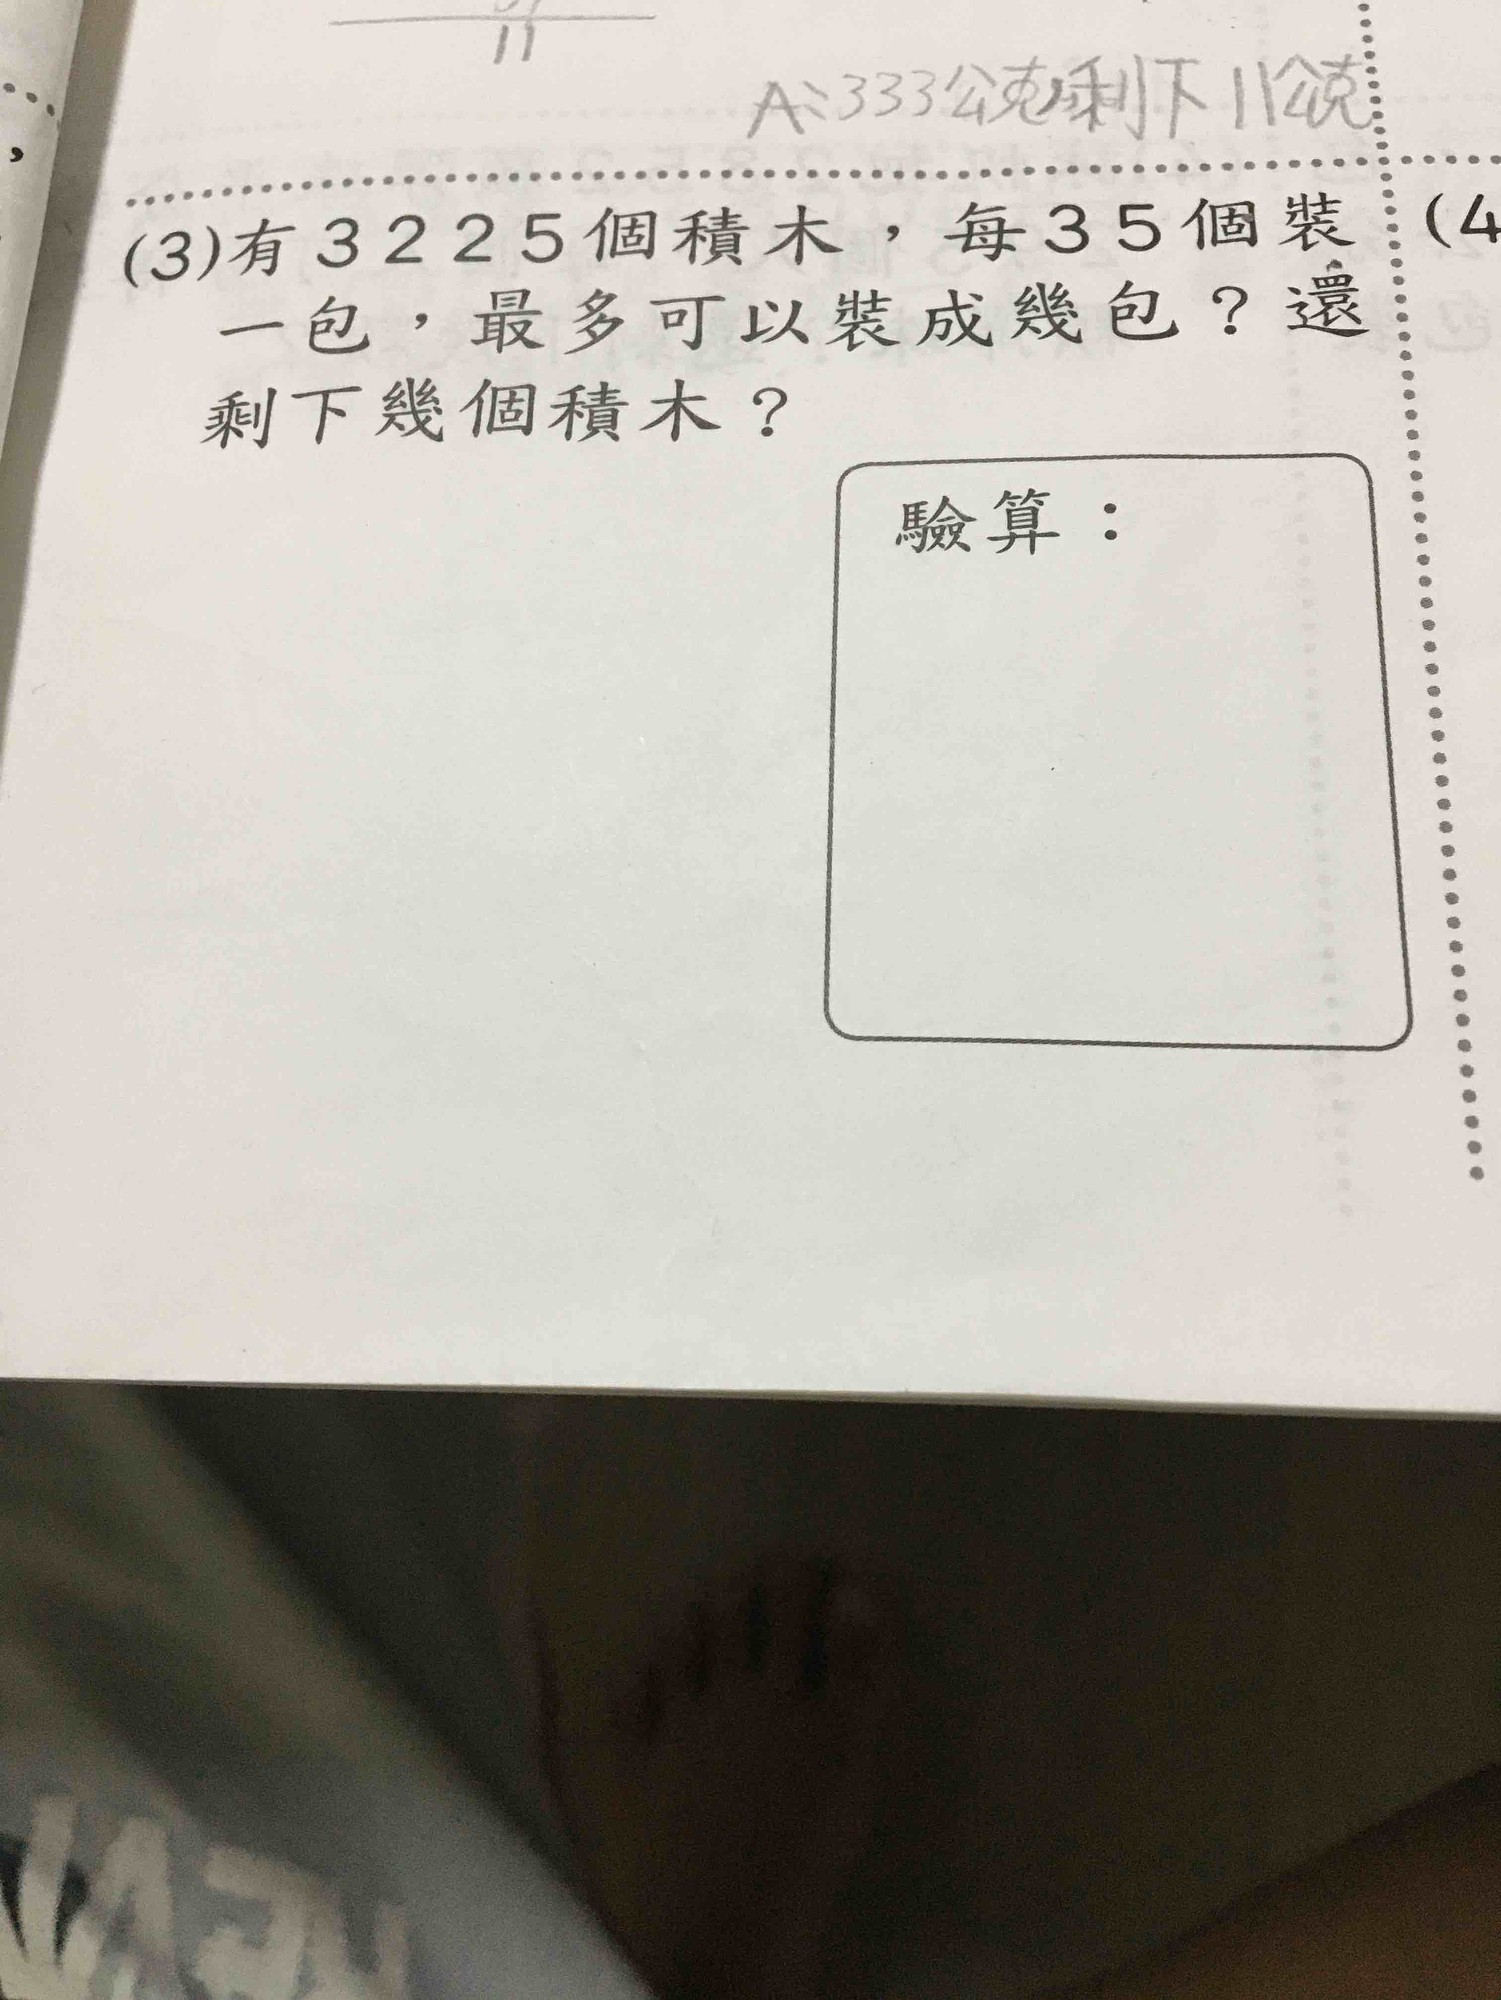 11
A:333公克,剩下11公克
，
(3)有3225個積木，每35個裝 (4
一包，最多可以裝成幾包？還
剩下幾個積木？
驗算：